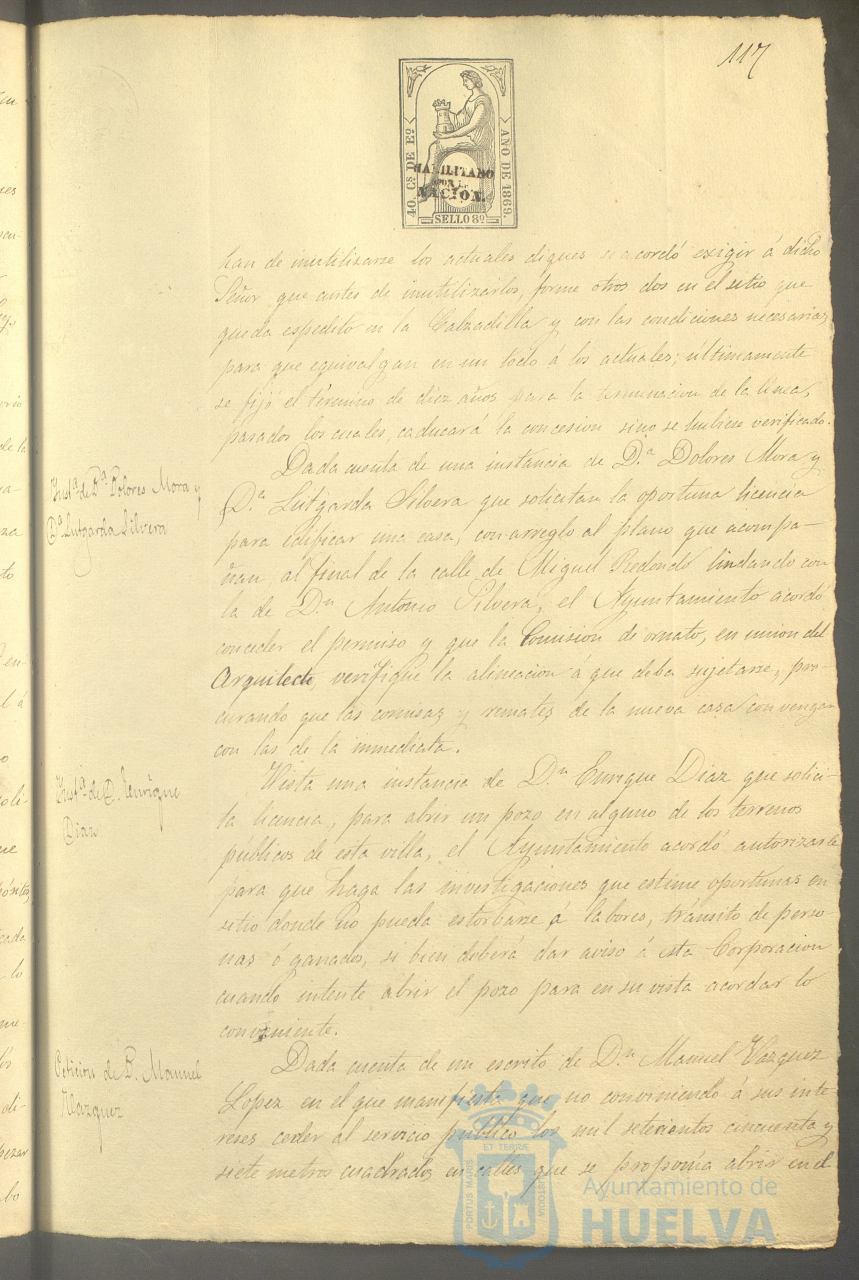 117
40. Cs DE Eº
AÑO DE 1869.
HABILITADO
POR LA
NACION.
SELLO 8º
han de inutilizarse los actuales diques se acordó exigir á dicho
Señor que antes de inutilizarlos, forme otros dos en el sitio que
queda espedito en la Calzadilla y con las condiciones necesarias
para que equivalgan en un todo á los actuales; últimamente
se fijó el término de diez años para la terminacion de la linea,
pasados los cuales, caducará la concesion sino se hubiese verificado.
Instª de Dª Dolores Mora y
Dª Lutgarda Silvera
Dada cuenta de una instancia de D.ª Dolores Mora y
D.ª Lutgarda Silvera que solicitan la oportuna licencia
para edificar una casa, con arreglo al plano que acompa-
ñan, al final de la calle de Miguel Redondo lindando con
la de D.n Antonio Silvera, el Ayuntamiento acordó
conceder el permiso y que la Comision de ornato, en union del
Arquitecto, verifique la alineacion á que deba sujetarse, pro-
curando que las cornisas y remates de la nueva casa convengan
con las de la inmediata.
Instª de D. Enrique
Diaz
Vista una instancia de D.n Enrique Diaz que solici-
ta licencia, para abrir un pozo en alguno de los terrenos
públicos de esta villa, el Ayuntamiento acordó autorizarle
para que haga las investigaciones que estime oportunas en
sitio donde no pueda estorbarse á labores, tránsito de perso-
nas ó ganados, si bien deberá dar aviso á esta Corporacion
cuando intente abrir el pozo para en su vista acordar lo
conveniente.
Peticion de D. Manuel
Vazquez
Dada cuenta de un escrito de D.n Manuel Vazquez
Lopez en el que manifiesta que no conviniendo á sus inte-
reses ceder al servicio público los mil setecientos cincuenta y
siete metros cuadrados en calles que se proponia abrir en el
PORTUS MARIS
ET TERRÆ
CUSTODIA
Ayuntamiento de
HUELVA